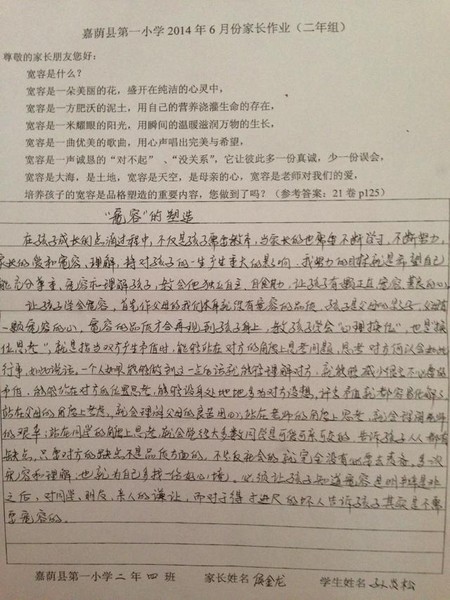 嘉荫县第一小学2014年6月份家长作业（二年组）
尊敬的家长朋友您好：
宽容是什么？
宽容是一朵美丽的花，盛开在纯洁的心灵中，
宽容是一方肥沃的泥土，用自己的营养浇灌生命的存在，
宽容是一米耀眼的阳光，用瞬间的温暖滋润万物的生长，
宽容是一曲优美的歌曲，用心声唱出完美与希望，
宽容是一声诚恳的“对不起”、“没关系”，它让彼此多一份真诚，少一份误会，
宽容是大海，是土地，宽容是天空，是母亲的心，宽容是老师对我们的爱，
培养孩子的宽容是品格塑造的重要内容，您做到了吗？（参考答案：21卷p125）
“宽容”的塑造
在孩子成长的点滴过程中，不仅是孩子需要教育，当家长的也需要不断学习，不断努力，
家长的爱和宽容、理解，将对孩子的一生产生重大的影响，我努力的目标就是希望自己
能充分尊重、宽容和理解孩子，教会他独立自主、自食其力，让孩子有颗正直、宽容、善良的心。
让孩子学会宽容，首先作父母的我们本身就得有宽容的品质，孩子是父母的影子，父母有
一颗宽容的心，宽容的品质才会再现到孩子身上，教孩子学会“心理换位”，也是“换
位思考”，就是指当双方产生矛盾时，能够站在对方的角度上思考问题，思考对方何以会如此
行事，如此说话。一个人如果能够做到这一点应该就能够理解对方，就能够减少很多不必要的
矛盾，能够站在对方的位置思考，能够设身处地地多为对方着想，许多矛盾就都容易化解了
站在父母的角度上考虑，就会理解父母的良苦用心，站在老师的角度上思考，就会理解老师
的艰辛；站在同学的角度上思考，就会觉得大多数同学是可爱可亲可交的。告诉孩子人人都有
缺点，只要对方的缺点不是品质方面的，不是反社会的，就完全没有必要去责备，多一次
宽容和理解，也就为自己多找一份好心境。必须让孩子知道宽容是明辨是非
之后，对同学、朋友、亲人的谦让，而对于得寸进尺的坏人告诉孩子其实是不需
要宽容的。
嘉荫县第一小学二年四班 家长姓名 学生姓名